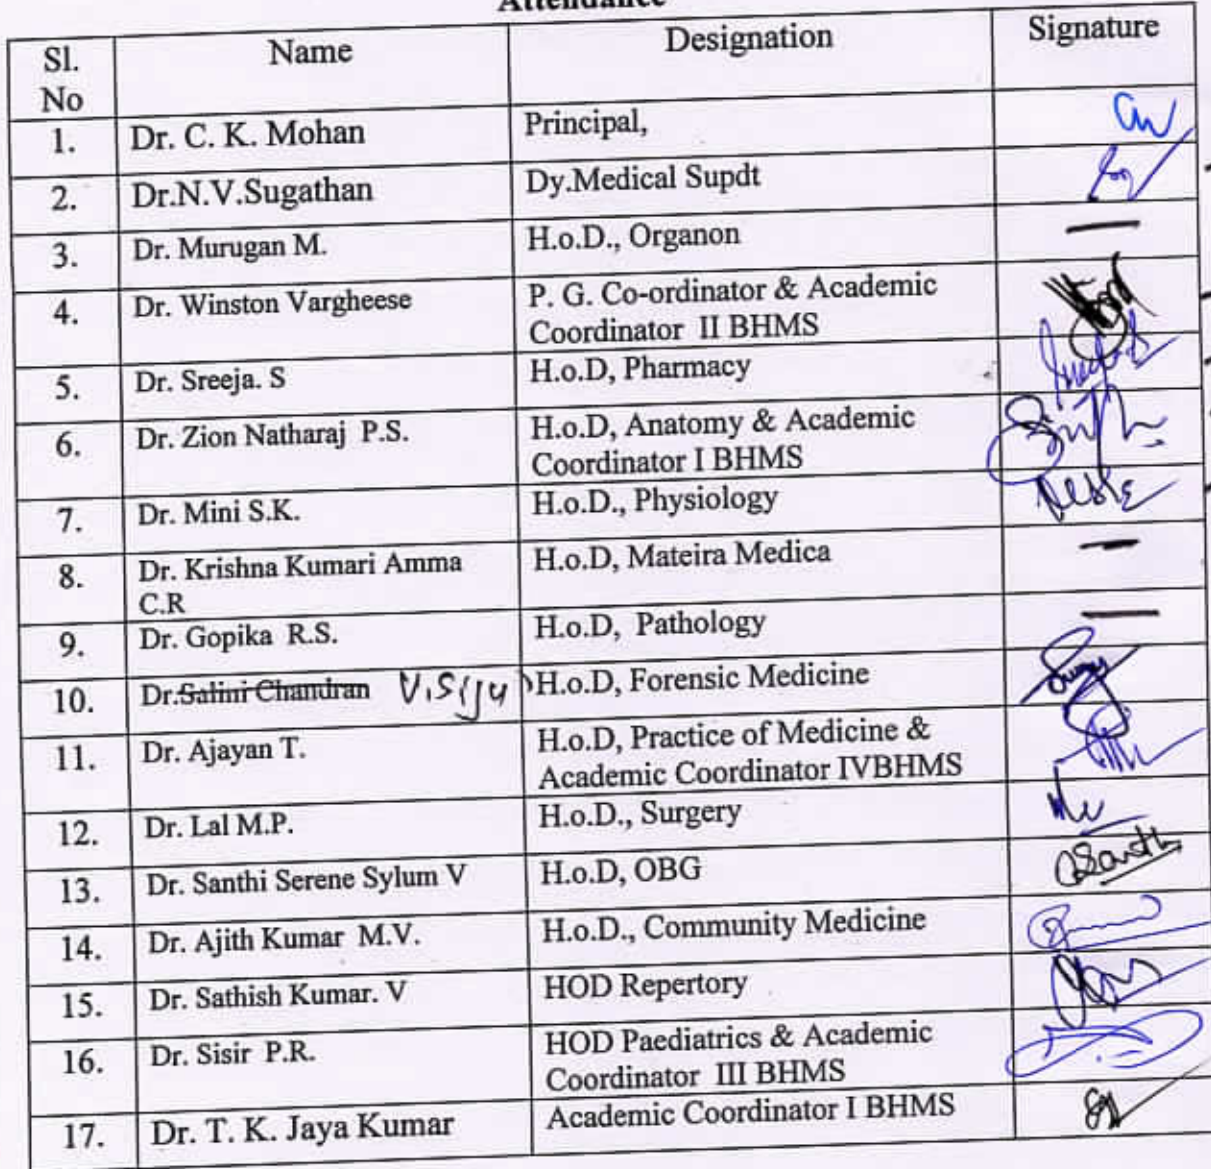 Attendance
Sl. No Name Designation Signature
1. Dr. C. K. Mohan Principal,
2. Dr.N.V.Sugathan Dy.Medical Supdt
3. Dr. Murugan M. H.o.D., Organon —
4. Dr. Winston Vargheese P. G. Co-ordinator & Academic
Coordinator II BHMS
5. Dr. Sreeja. S H.o.D, Pharmacy
6. Dr. Zion Natharaj P.S. H.o.D, Anatomy & Academic
Coordinator I BHMS
7. Dr. Mini S.K. H.o.D., Physiology
8. Dr. Krishna Kumari Amma H.o.D, Mateira Medica —
C.R
9. Dr. Gopika R.S. H.o.D, Pathology —
10. Dr.Salini Chandran V.Siju H.o.D, Forensic Medicine
11. Dr. Ajayan T. H.o.D, Practice of Medicine &
Academic Coordinator IVBHMS
12. Dr. Lal M.P. H.o.D., Surgery
13. Dr. Santhi Serene Sylum V H.o.D, OBG
14. Dr. Ajith Kumar M.V. H.o.D., Community Medicine
15. Dr. Sathish Kumar. V HOD Repertory
16. Dr. Sisir P.R. HOD Paediatrics & Academic
Coordinator III BHMS
17. Dr. T. K. Jaya Kumar Academic Coordinator I BHMS